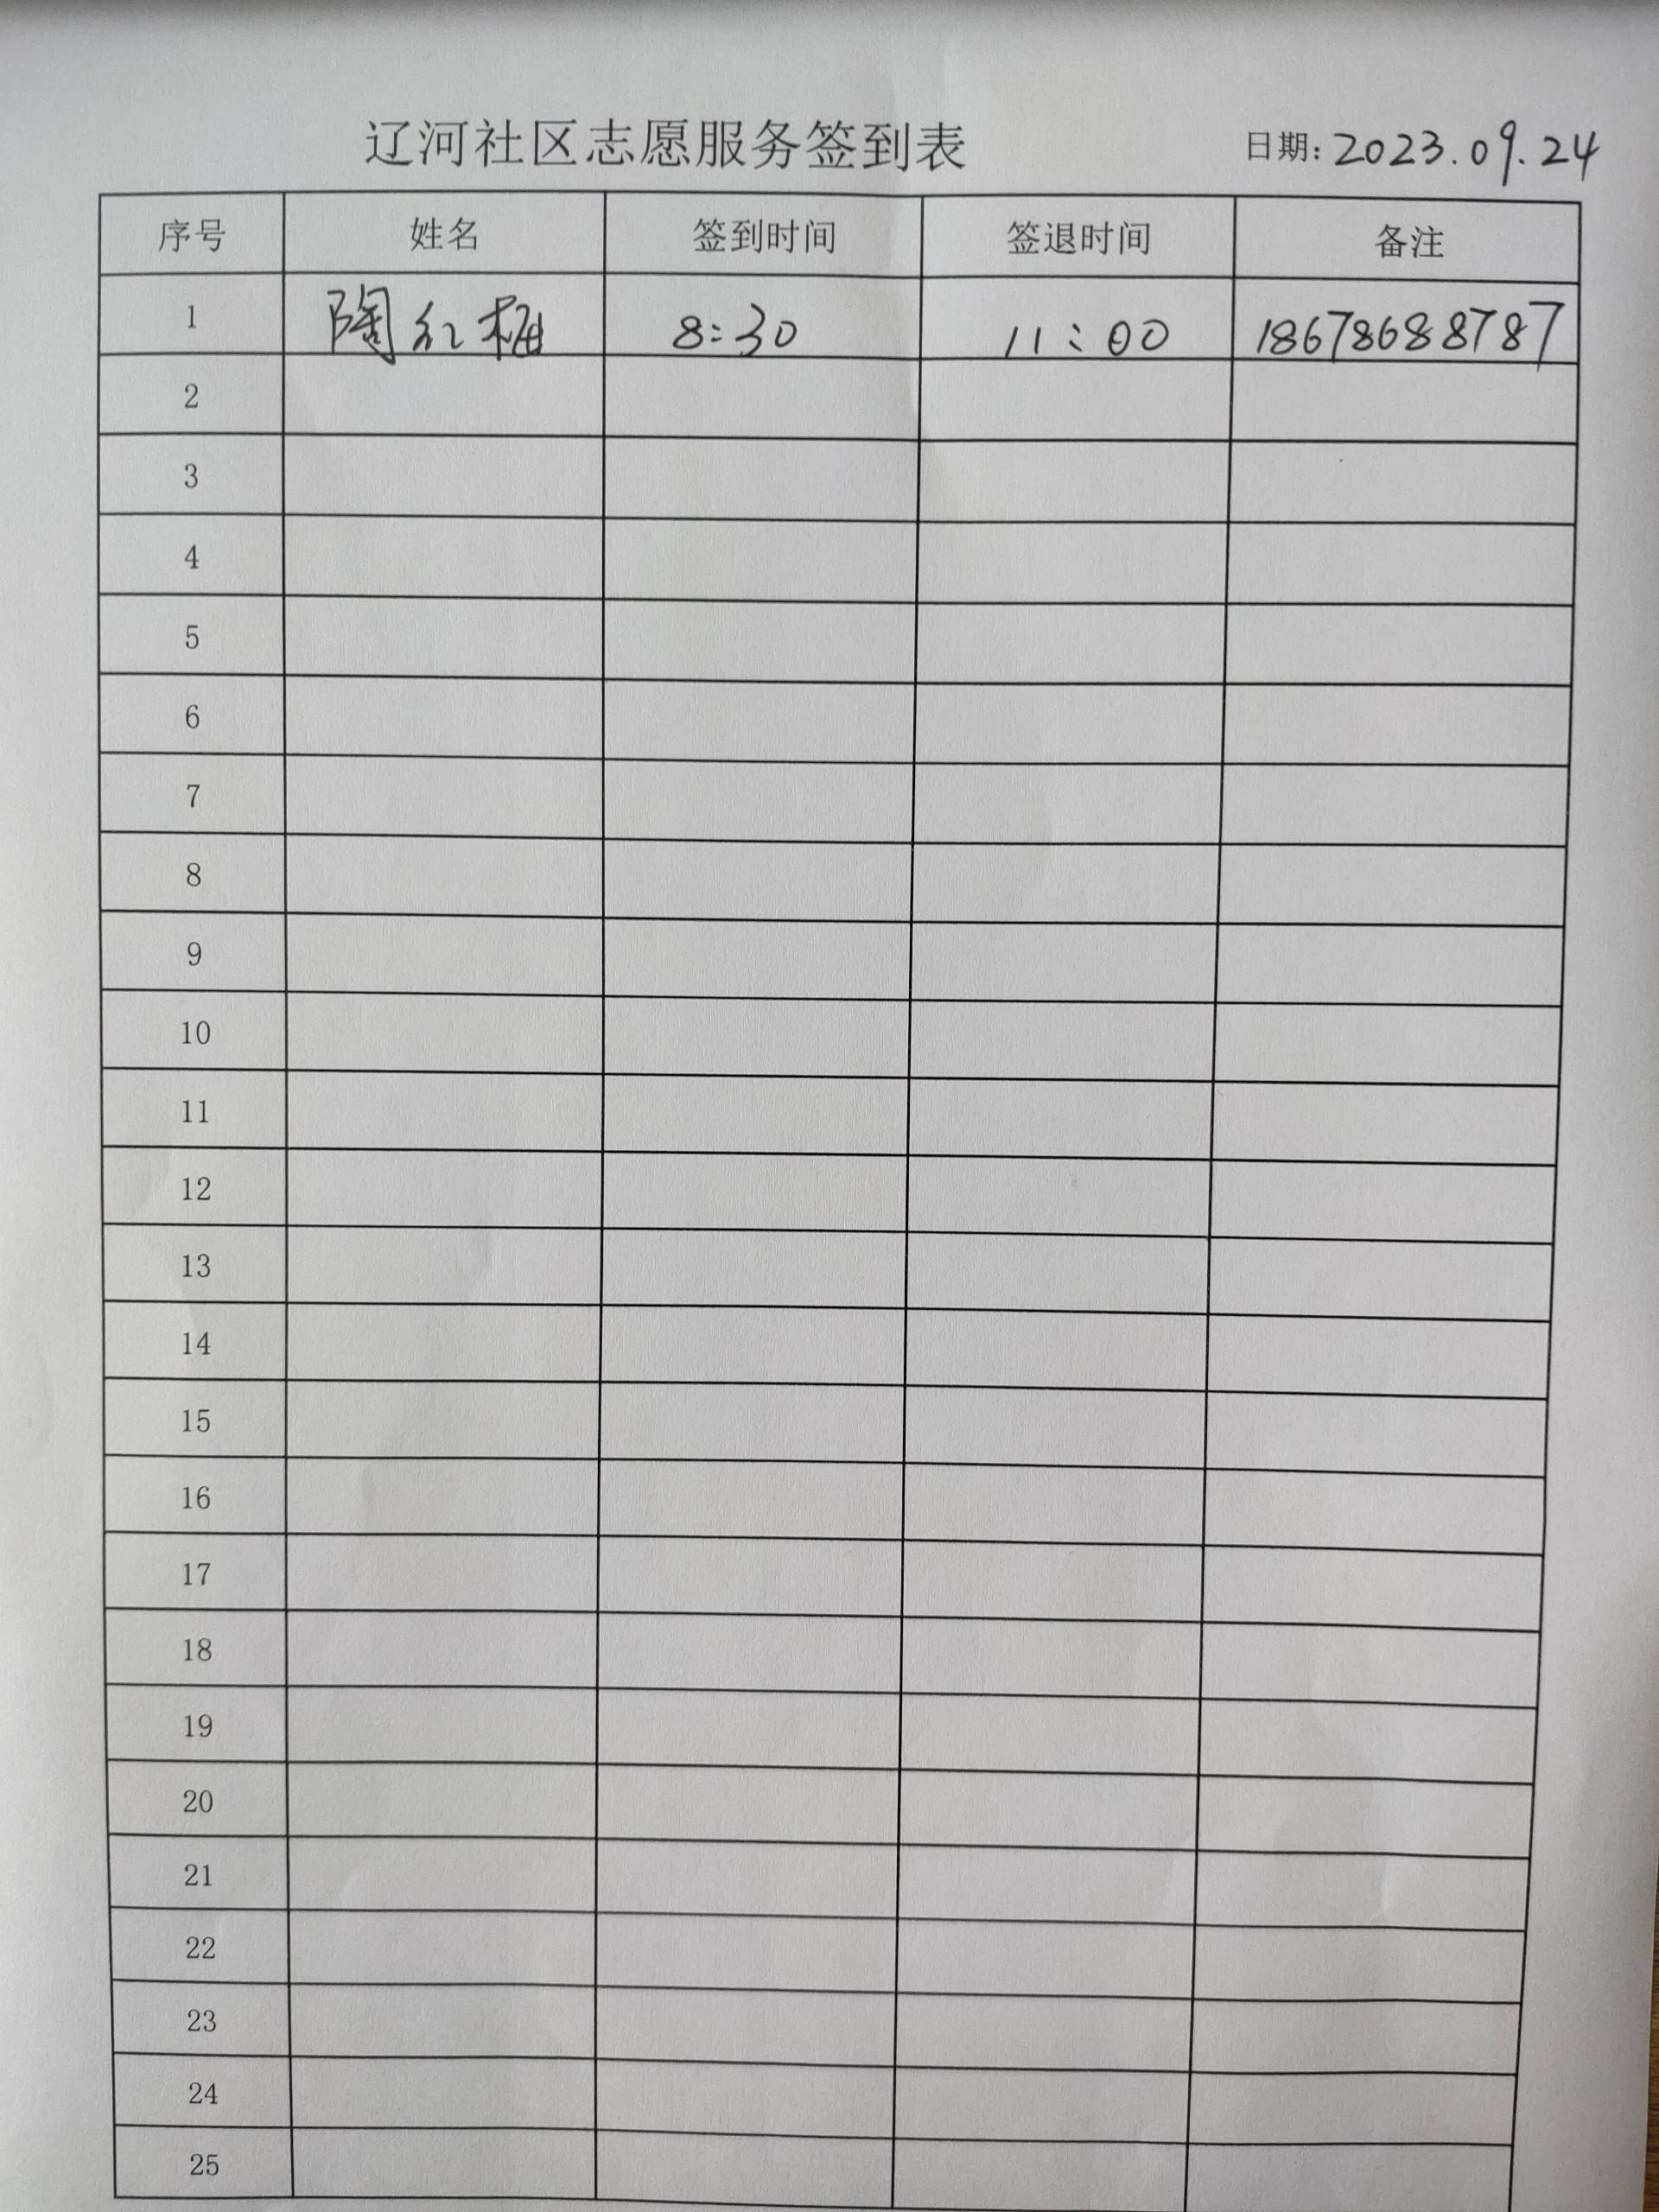 辽河社区志愿服务签到表 日期:2023.09.24
序号 姓名 签到时间 签退时间 备注
1 陶红梅 8:30 11:00 18678688787
2
3
4
5
6
7
8
9
10
11
12
13
14
15
16
17
18
19
20
21
22
23
24
25